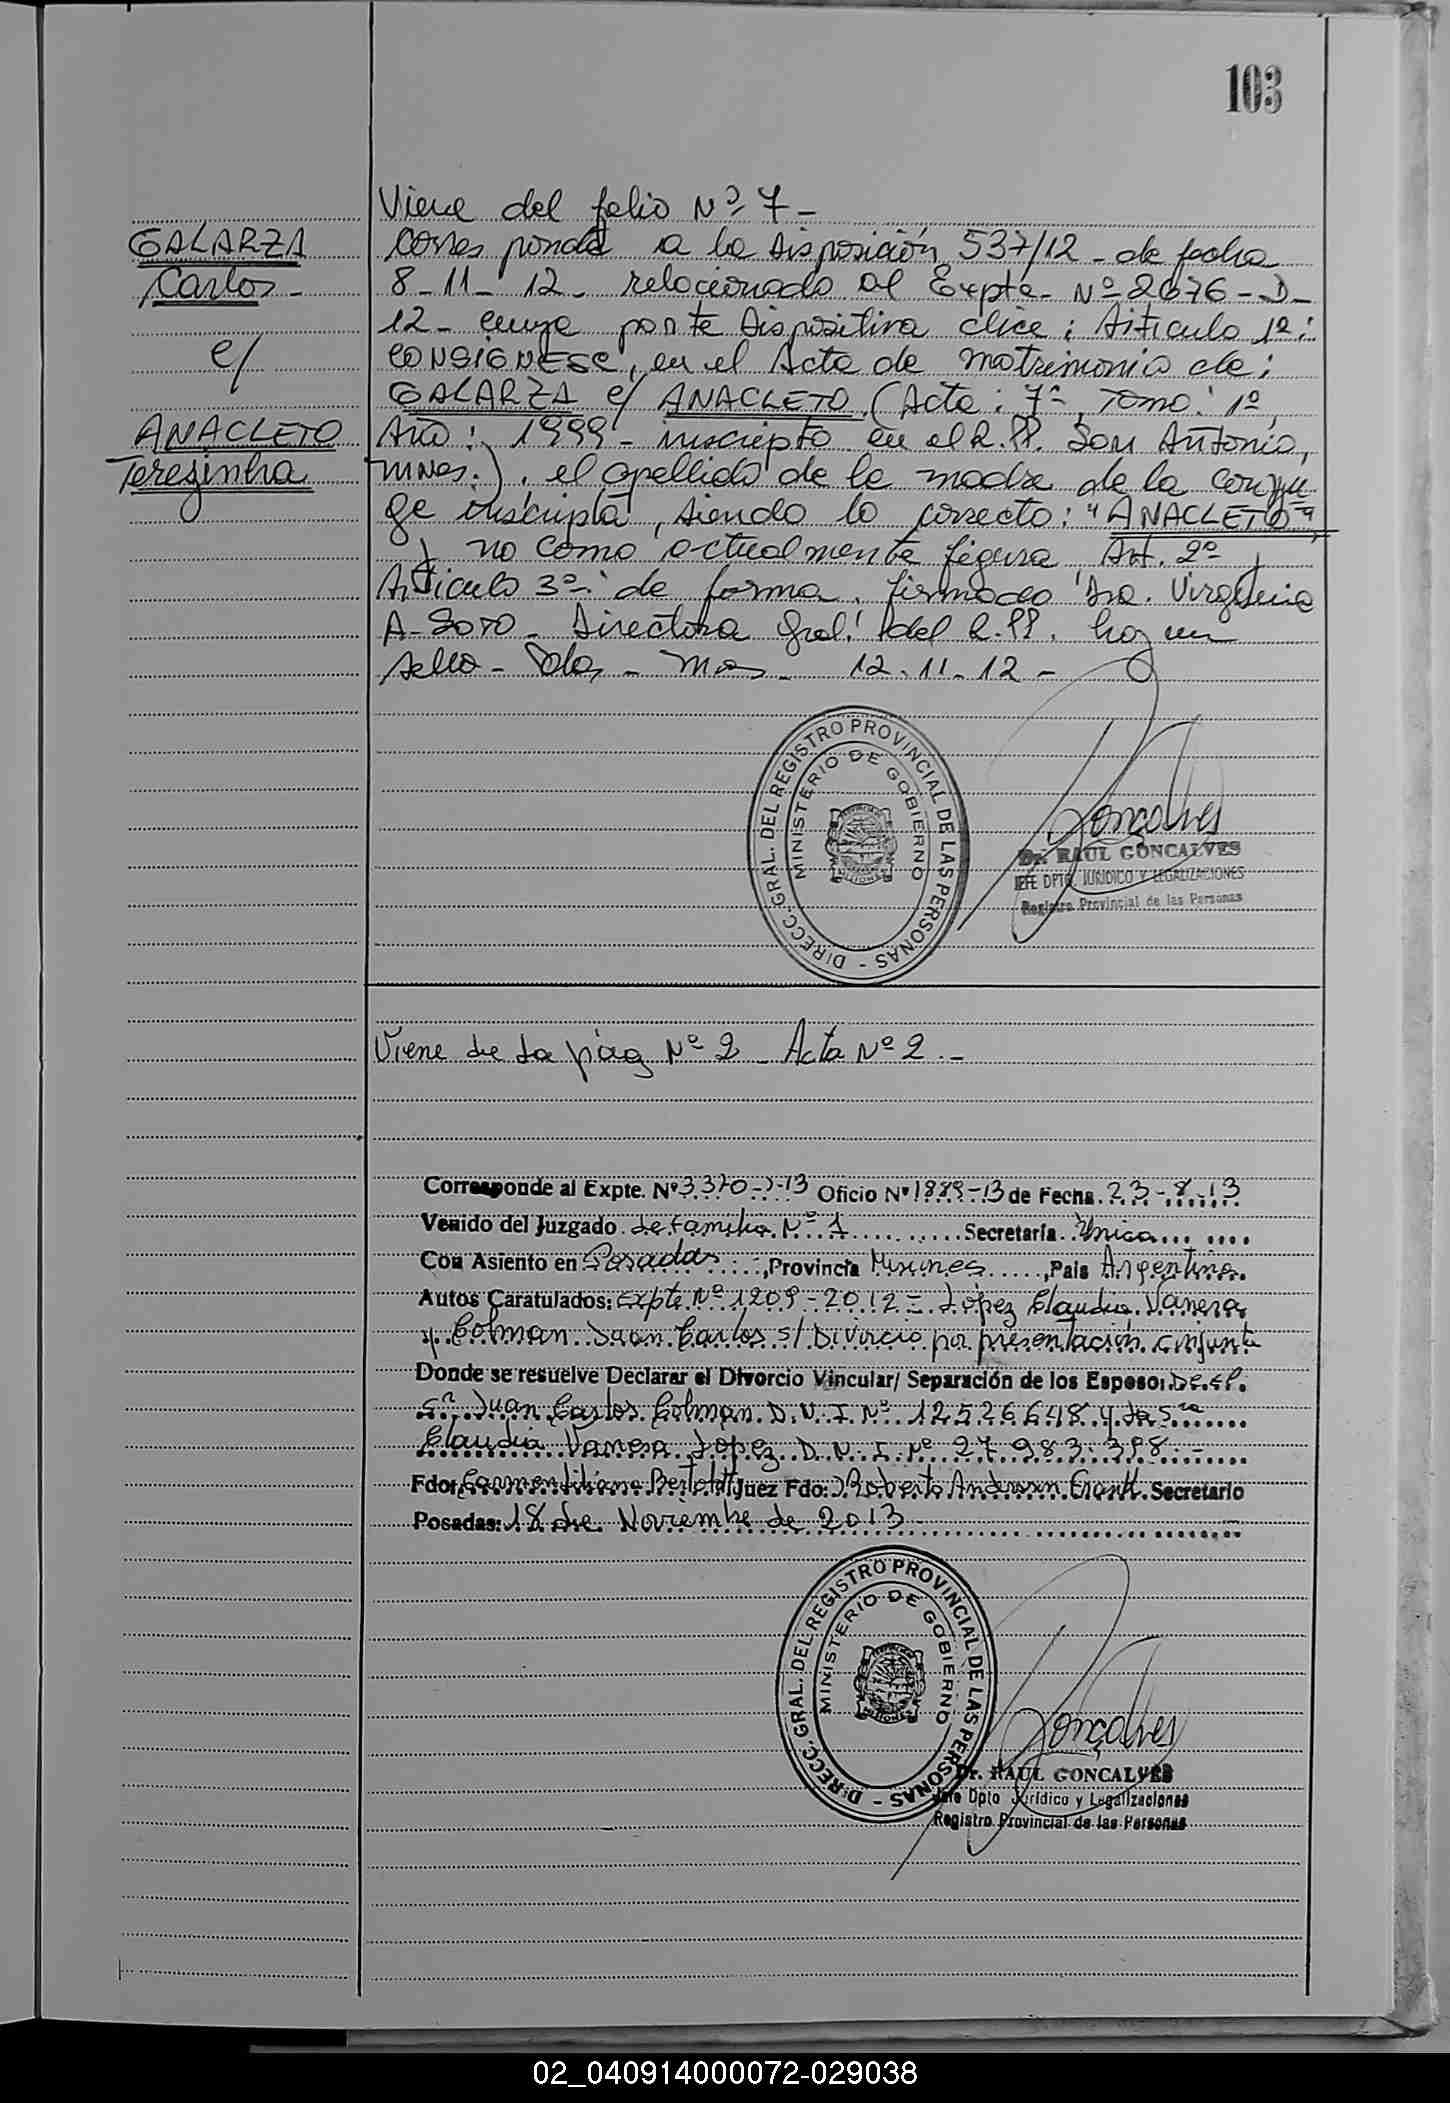 103
Viene del folio Nº 7 -
GALARZA
Carlos -
c/
ANACLETO
Terezinha
Corresponde a la Disposición 537/12 - de fecha
8 - 11 - 12 - relacionado al Expte - Nº 2676 - D -
12 - cuya parte Dispositiva dice: Artículo 1º:
CONSIGNESE, en el Acta de matrimonio de:
GALARZA c/ ANACLETO (Acta: 7ª, Tomo: 1º,
Año: 1999 - inscripto en el R.PP. San Antonio,
Mnes.), el apellido de la madre de la conyu
ge inscripta, siendo lo correcto: "ANACLETO"
y no como actualmente figura Art. 2º y
Artículo 3º: de forma. firmado Dra. Virginia
A - SOTO - Directora Gral. del R.PP. hay un
sello - Pdas - Mnes - 12 - 11 - 12 -
DIRECC. GRAL. DEL REGISTRO PROVINCIAL DE LAS PERSONAS -
MINISTERIO DE GOBIERNO
MISIONES
Goncalves
Dr. RAUL GONCALVES
JEFE DPTO. JURIDICO Y LEGALIZACIONES
Registro Provincial de las Personas
Viene de la pág Nº 2 - Acta Nº 2 . -
Corresponde al Expte. Nº 3370-J-13 Oficio Nº 1889-13 de Fecha 23-8-13
Venido del Juzgado de Familia Nº 1 Secretaría Unica
Con Asiento en Posadas, Provincia Misiones, Pais Argentina.
Autos Caratulados: Expte Nº 1209-2012 = López Claudia Vanesa
y Colman Juan Carlos s/ Divorcio por presentación conjunta
Donde se resuelve Declarar el Divorcio Vincular/ Separación de los Esposos: De el
Sr Juan Carlos Colman D.N.I. Nº 12526648 y la Sra
Claudia Vanesa López D.N.I. Nº 27.983.398 . -
Fdo: Carmen Liliana Juez Fdo: Roberto Secretario
Posadas: 18 de Noviembre de 2013
DIRECC. GRAL. DEL REGISTRO PROVINCIAL DE LAS PERSONAS -
MINISTERIO DE GOBIERNO
MISIONES
Goncalves
Dr. RAUL GONCALVES
Jefe Dpto Jurídico y Legalizaciones
Registro Provincial de las Personas
02_040914000072-029038